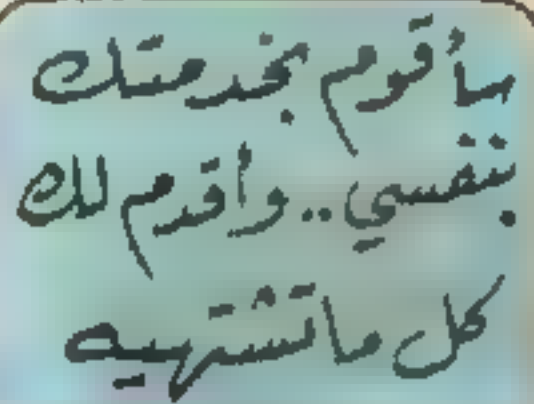 سأقوم بخدمتك
بنفسي .. وأقدم لك
كل ما تشتهيه